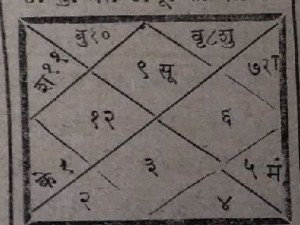 बु१० बृ८शु
श११ ९ सू ७रा
१२ ६
के१ ३ ५ मं
२ ४